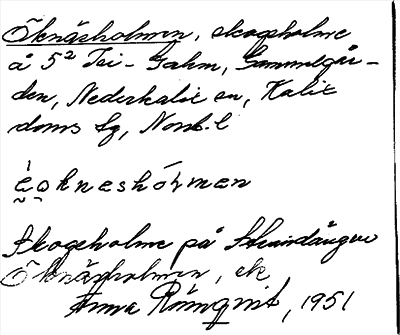 Öknäsholmen, skogsholme
å 5² Tei - Gahm, Gammelgår-
den, Nederkalix sn, Kalix
doms sg, Norrb. l
e̯o̯knesholmen
Skogsholme på
Öknäsholmen, ek
Anna Rönnqvist, 1951